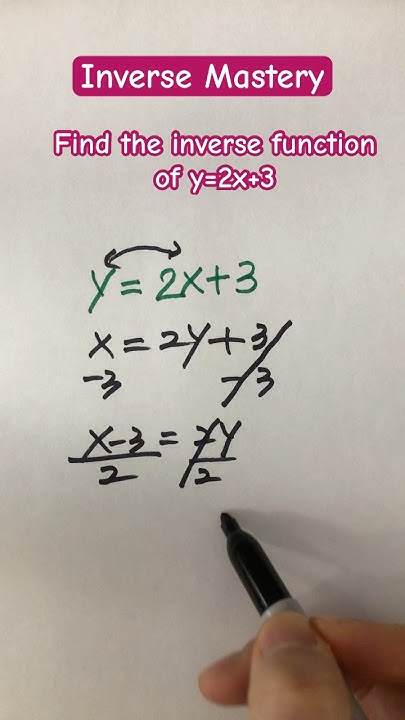 Inverse Mastery
Find the inverse function
of y=2x+3
y=2x+3
x=2y+3
-3 -3
x-3=2y
2 2